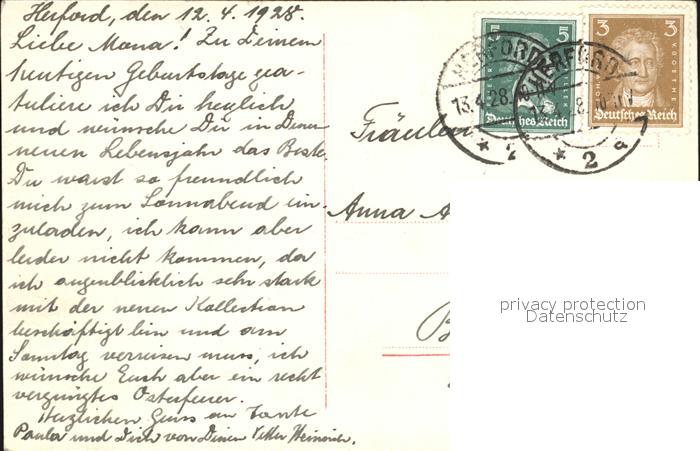 Herford, den 12. 4. 1928.
Liebe Mana! Zu Deinem
heutigen Geburtstage gra-
tuliere ich Dir herzlich
und wünsche Dir in Deinem
neuen Lebensjahr das Beste.
Du warst so freundlich
mich zum Sonnabend ein-
zuladen, ich kann aber
leider nicht kommen, da
ich augenblicklich sehr stark
mit der neuen Kollection
beschäftigt bin und am
Sonntag verreisen muss, ich
wünsche Euch aber ein recht
vergnügtes Osterfeuer.
Herzlichen Gruss an Tante
Paula und Dich von Deinem Vetter Heinrich.
5 5
Deutsches Reich
3 3
J.W. GOETHE
Deutsches Reich
HERFORD
13.4.28.
* 2
HERFORD
* 2 a
Fräulein
Anna A
B
privacy protection
Datenschutz